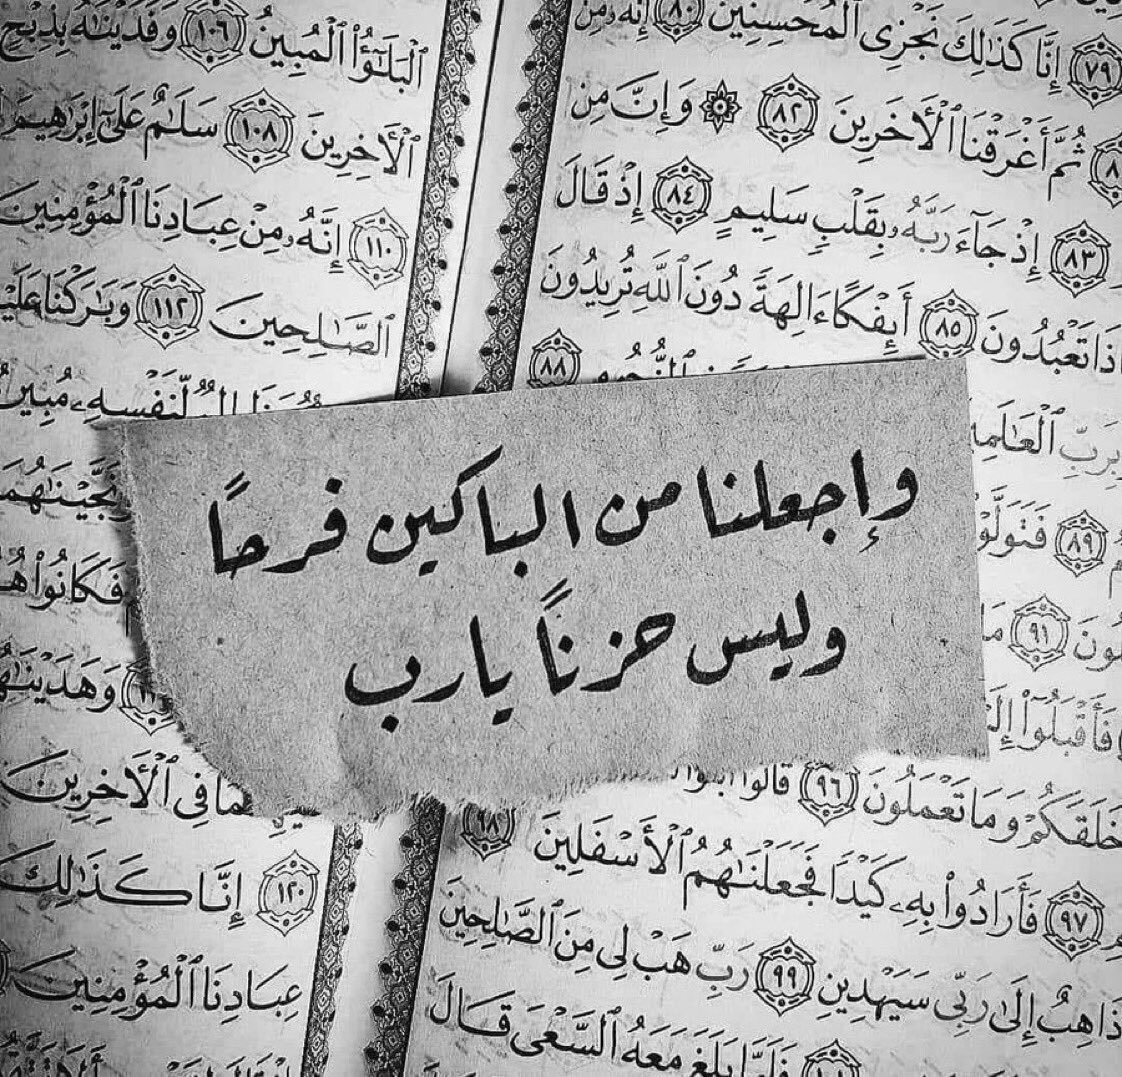 ٧٩ إِنَّا كَذَٰلِكَ نَجْزِى ٱلْمُحْسِنِينَ ٨٠ إِنَّهُۥ مِنْ
ثُمَّ أَغْرَقْنَا ٱلْأَخَرِينَ ٨٢ ۞ وَإِنَّ مِن
٨٣ إِذْ جَآءَ رَبَّهُۥ بِقَلْبٍ سَلِيمٍ ٨٤ إِذْ قَالَ
تَعْبُدُونَ ٨٥ أَئِفْكًا ءَالِهَةً دُونَ ٱللَّهِ تُرِيدُونَ
بِرَبِّ ٨٨
٨٩
٩١
فَأَقْبَلُوٓا۟
خَلَقَكُمْ وَمَا تَعْمَلُونَ ٩٦ قَالُوا۟
٩٧ فَأَرَادُوا۟ بِهِۦ كَيْدًا فَجَعَلْنَٰهُمُ ٱلْأَسْفَلِينَ ٩٨
ذَاهِبٌ إِلَىٰ رَبِّى سَيَهْدِينِ ٩٩ رَبِّ هَبْ لِى مِنَ ٱلصَّٰلِحِينَ
فَلَمَّا بَلَغَ مَعَهُ ٱلسَّعْىَ قَالَ
وإجعلنا من الباكين فرحاً
وليس حزناً يارب
ٱلْبَلَٰٓؤُا۟ ٱلْمُبِينُ ١٠٦ وَفَدَيْنَٰهُ بِذِبْحٍ
ٱلْأَخِرِينَ ١٠٨ سَلَٰمٌ عَلَىٰٓ إِبْرَٰهِيمَ
١١٠ إِنَّهُۥ مِنْ عِبَادِنَا ٱلْمُؤْمِنِينَ
ٱلصَّٰلِحِينَ ١١٢ وَبَٰرَكْنَا
لِّنَفْسِهِۦ مُبِينٌ
فَكَانُوا۟
وَهَدَيْنَٰهُمَا
فِى ٱلْأَخِرِينَ
١٢٠ إِنَّا كَذَٰلِكَ
عِبَادِنَا ٱلْمُؤْمِنِينَ